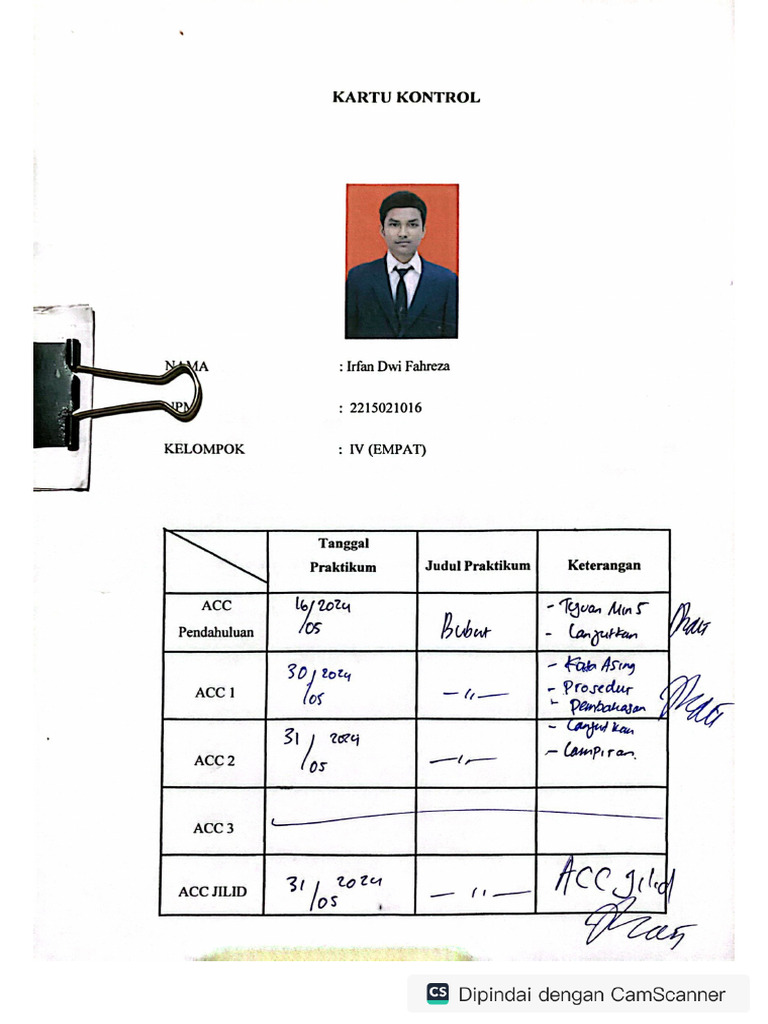 KARTU KONTROL
NAMA : Irfan Dwi Fahreza
NPM : 2215021016
KELOMPOK : IV (EMPAT)
Tanggal Praktikum
Judul Praktikum
Keterangan
ACC Pendahuluan
16/2024
/05
Bubut
- Tujuan Min 5
- Lanjutkan
ACC 1
30/2024
/05
— ıı —
- Kata Asing
- Prosedur
- Pembahasan
ACC 2
31/2024
/05
— ıı —
- Lanjutkan
- Lampiran.
ACC 3
ACC JILID
31/2024
/05
— ıı —
ACC Jilid
CS Dipindai dengan CamScanner